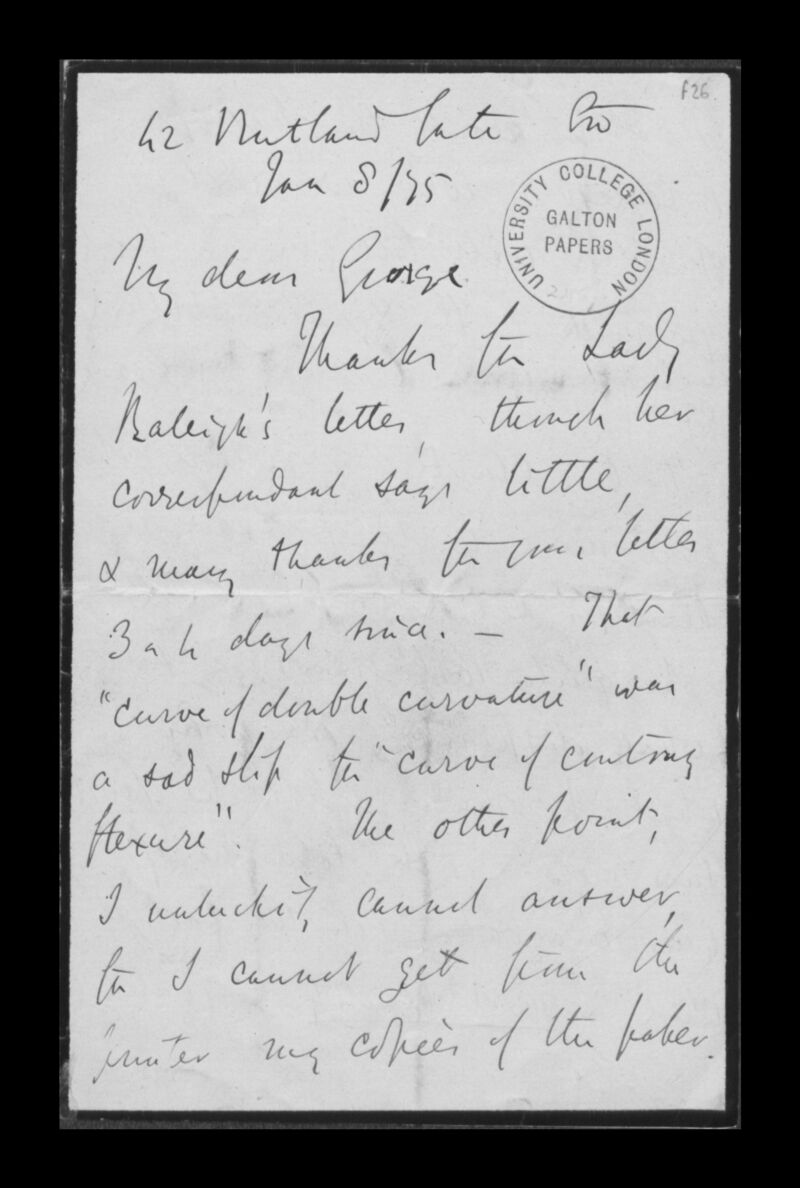 f26.
42 Rutland Gate SW
Jan 8/75
UNIVERSITY COLLEGE LONDON
GALTON
PAPERS
My dear George
Thanks for Lady
Raleigh's letter, though her
correspondant says little,
& many thanks for your letter
3 or 4 days since. — That
"curve of double curvature" was
a sad slip for "curve of contrary
flexure". The other point,
I unluckily, cannot answer,
for I cannot get from the
printer my copies of the paper.